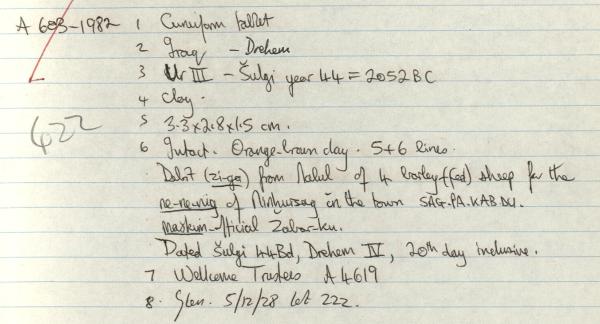 A 603-1982 1 Cuneiform tablet
2 Iraq - Drehem
3 Ur III - Šulgi year 44 = 2052 BC
4 Clay.
422
5 3.3x2.8x1.5 cm.
6 Intact. Orange-brown clay. 5+6 lines.
Debit (zi-ga) from Nalul of 4 barley-f(ed) sheep for the
ne-ne-nig of Ninhursag in the town SAG.PA.KAB.DU.
maškim-official Žabar-ku.
Dated Šulgi 44Bd, Drehem IV, 20th day inclusive.
7 Wellcome Trustees A 4619
8. Glen. 5/12/28 lot 222.